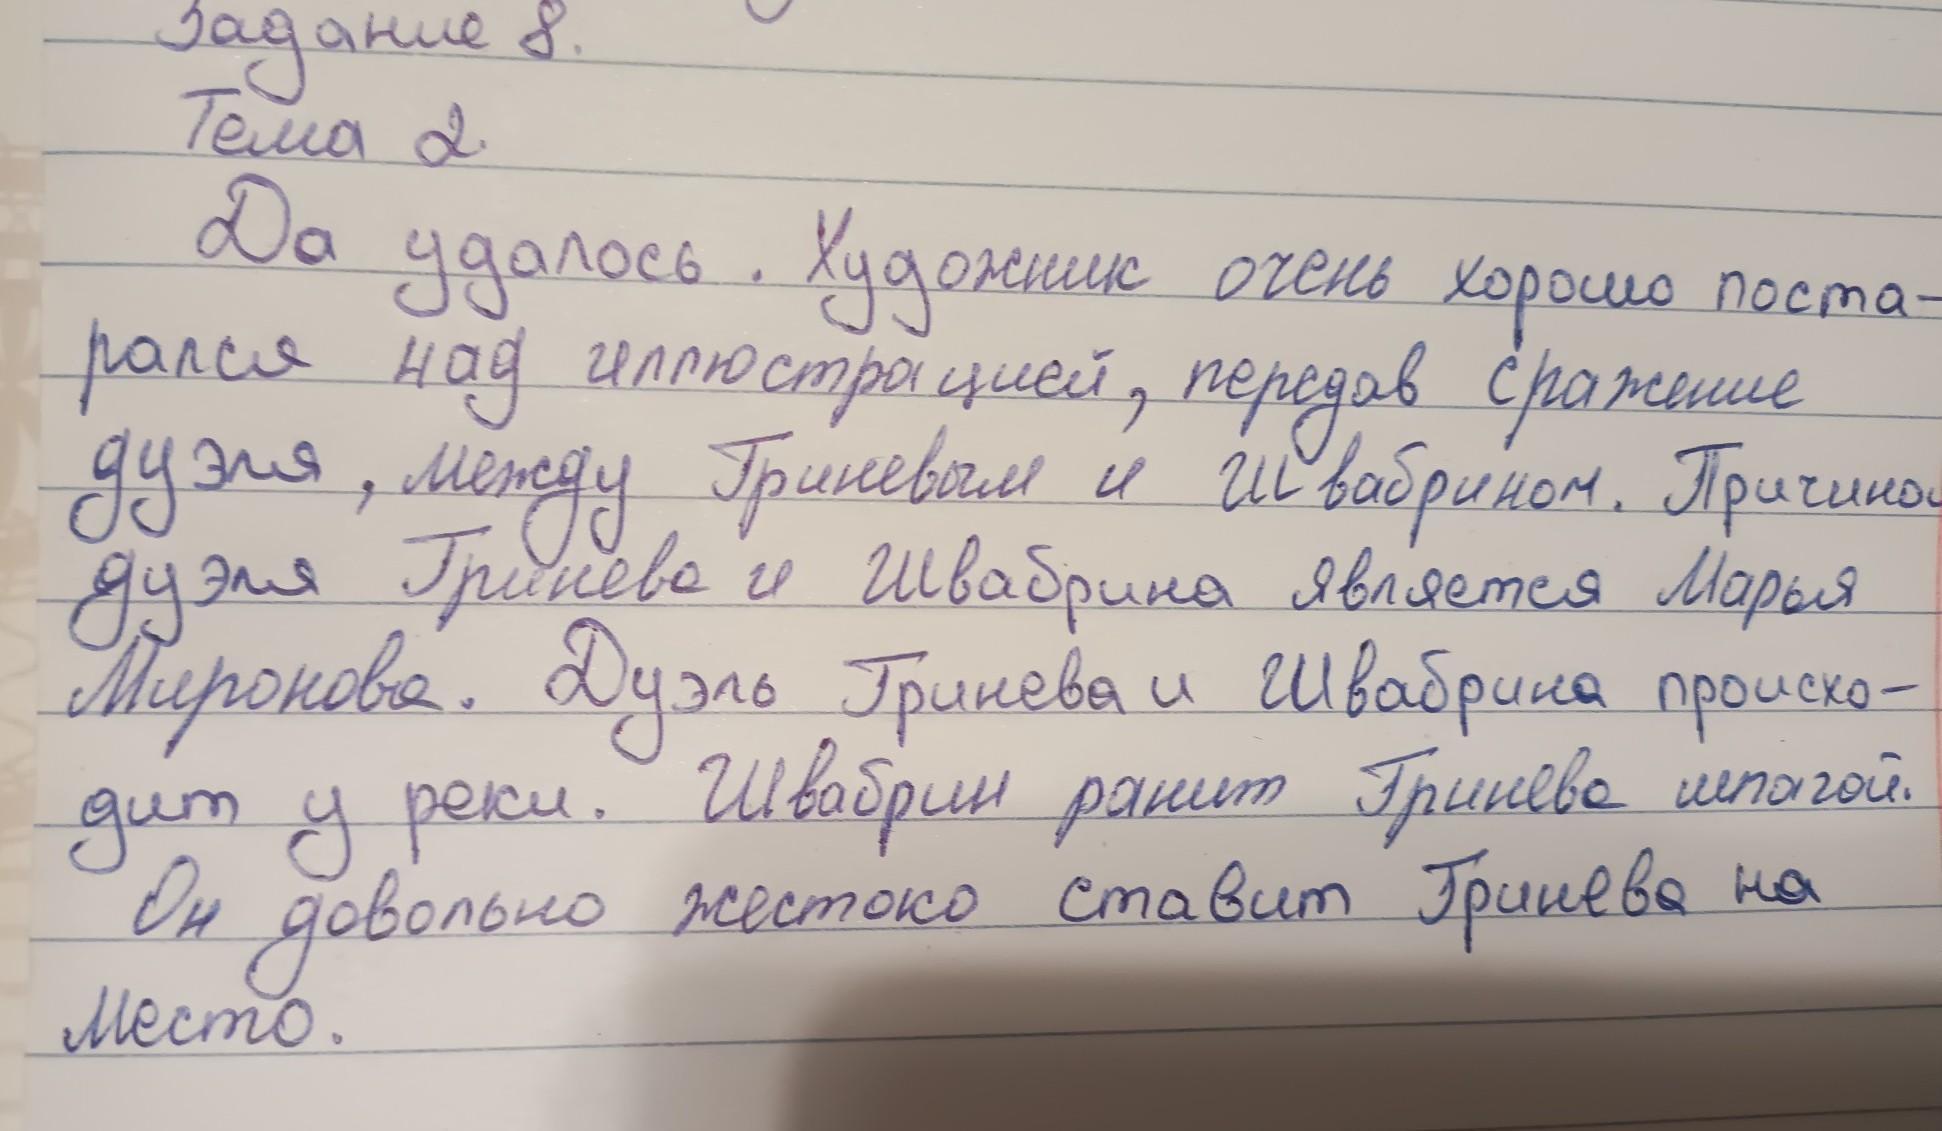 Задание 8.
Тема 2.
Да удалось. Художник очень хорошо поста-
рался над иллюстрацией, передав сражение
дуэля, между Гриневым и Швабрином. Причиной
дуэля Гринёва и Швабрина является Марья
Миронова. Дуэль Гринева и Швабрина происхо-
дит у реки. Швабрин ранит Гринёва шпагой.
Он довольно жестоко ставит Гринёва на
место.